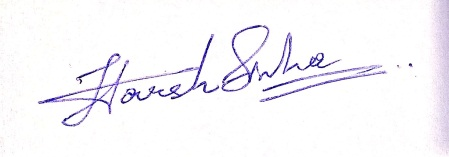 Harsh Sinha